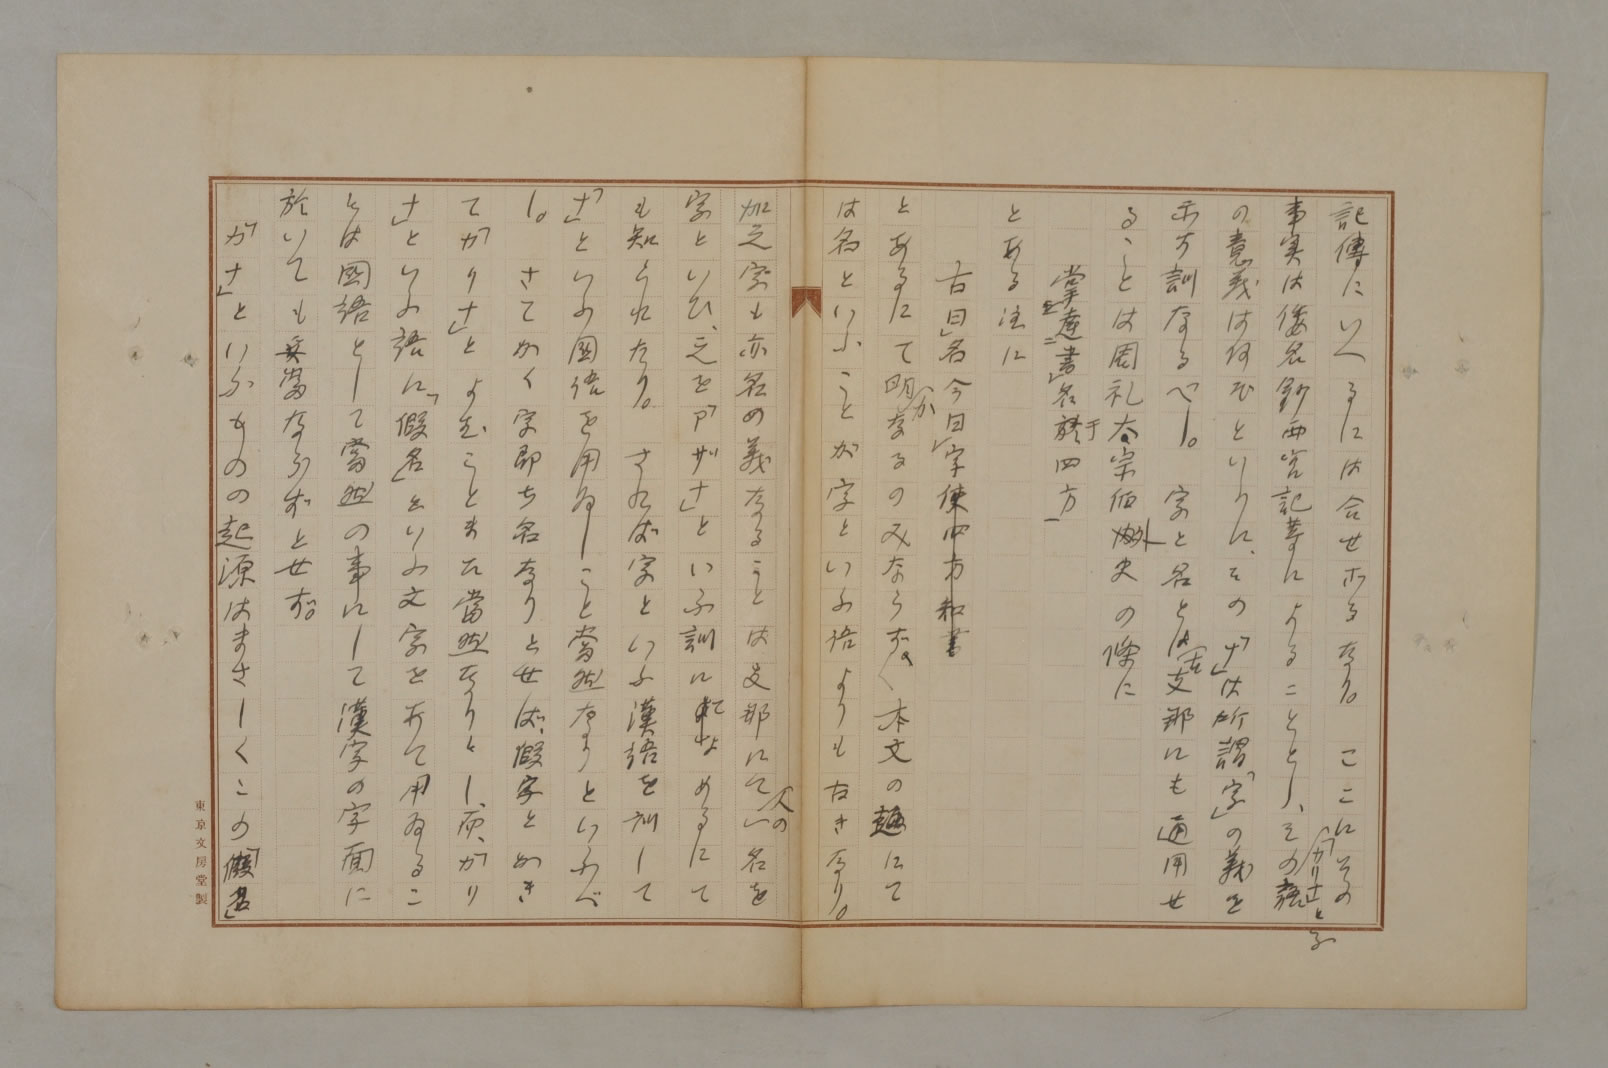 記傳にいへるには合せざるなり。 ここにその
事実は倭名鈔西宮記等によることとし、その「かりな」といふ語
の意義は何ぞといふに、その「ナ」は所謂「字」の義を
示す訓なるべし。 字と名とは古支那にも通用せ
ることは周礼太宗伯外史の條に
掌達書名于四方
とある注に
古曰名今曰字使四方知書
とあるにて明かなるのみならず、本文の趣にて
は名といふことが字といふ語よりも古きなり。
加之字も亦名の義なることは支那にて人の名を
字といひ、之を「アザナ」といふ訓にてよめるにて
も知られたり。 されば字といふ漢語を訓して
「ナ」といふ國語を用ゐしこと當然なりといふべ
し。 さてかく字即ち名なりとせば、假字とかき
て「かりナ」とよむこともまた當然なりとし、而、「かり
ナ」といふ語に「假名」といふ文字をあて用ゐるこ
とは國語として當然の事にして漢字の字面に
於いても妥當ならずとせず。
「かナ」といふものの起源はまさしくこの「假名」
東京文房堂製